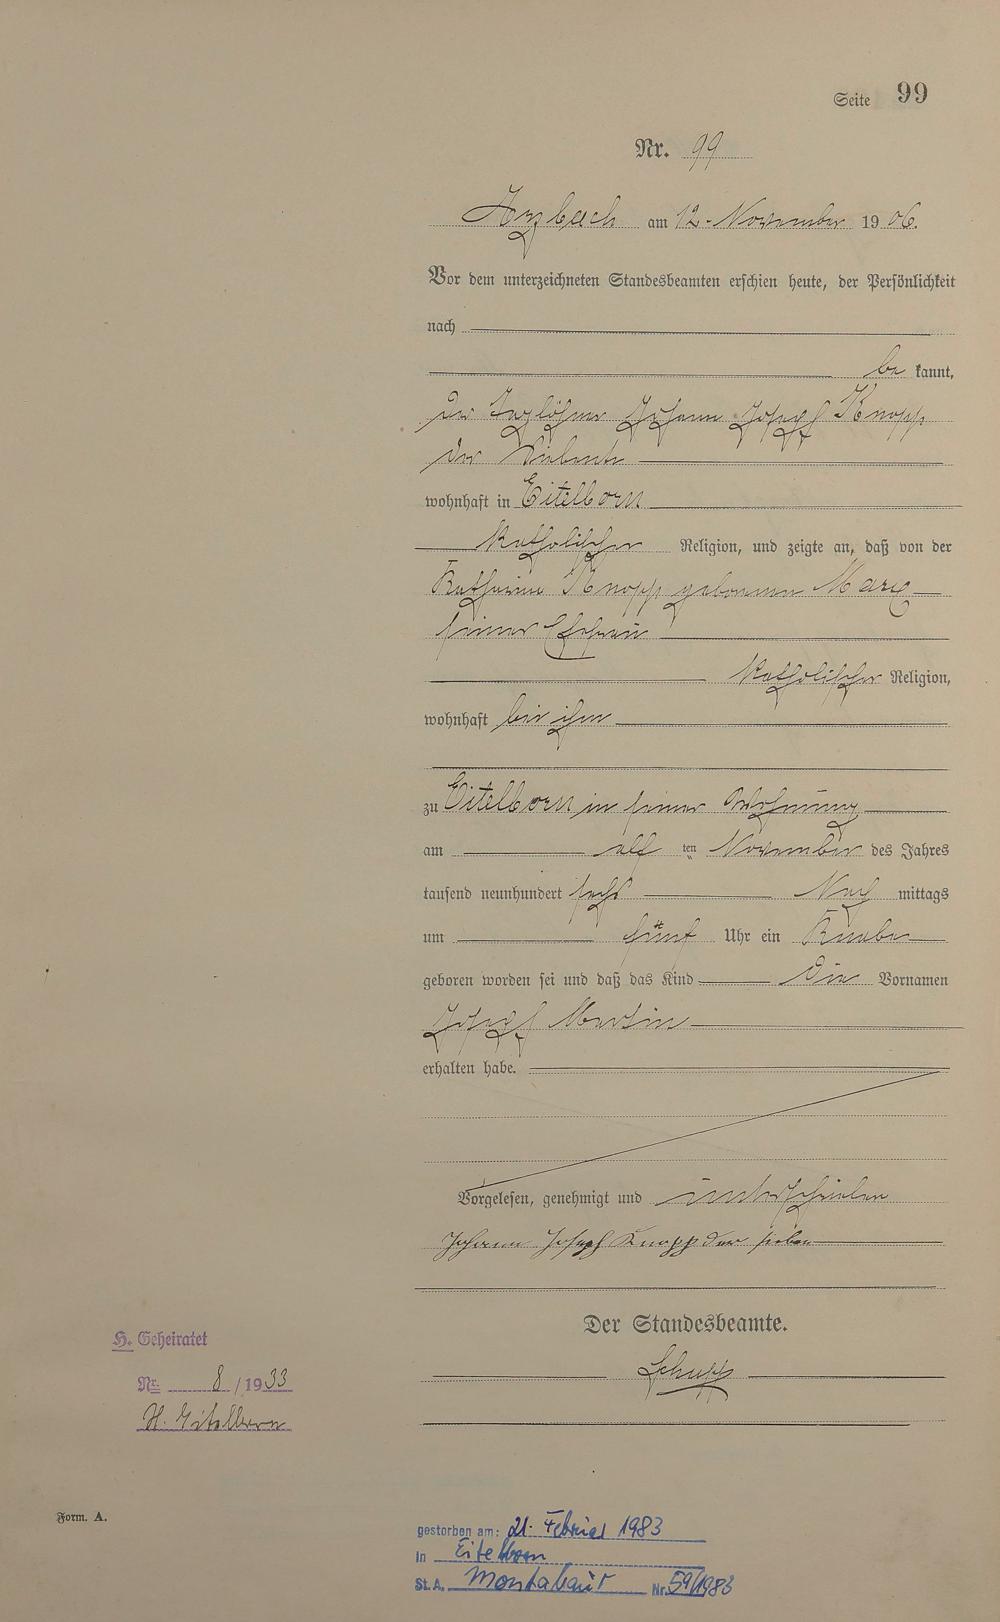 Seite 99
Nr. 99
Arzbach am 12. November 1906.
Vor dem unterzeichneten Standesbeamten erschien heute, der Persönlichkeit
nach
be kannt,
der Taglöhner Johann Joseph Knopp
der Siebente
wohnhaft in Eitelborn
katholischer Religion, und zeigte an, daß von der
Katharina Knopp geborenen Marx
seiner Ehefrau
katholischer Religion,
wohnhaft bei ihm
zu Eitelborn in seiner Wohnung
am elf ten November des Jahres
tausend neunhundert sechs Nach mittags
um fünf Uhr ein Knabe
geboren worden sei und daß das Kind die Vornamen
Joseph Martin
erhalten habe.
Vorgelesen, genehmigt und unterschrieben
Johann Joseph Knopp der sieben
Der Standesbeamte.
Schupp
H. Geheiratet
Nr. 8/1933
St. Eitelborn
Form. A.
gestorben am: 21. Februar 1983
in Eitelborn
St.A. Montabaur Nr. 59/1983